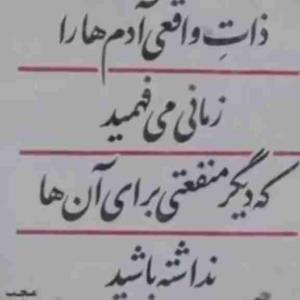 ذاتِ واقعی آدم‌ها را
زمانی می‌فهمید
که دیگر منفعتی برای آن‌ها
نداشته باشید